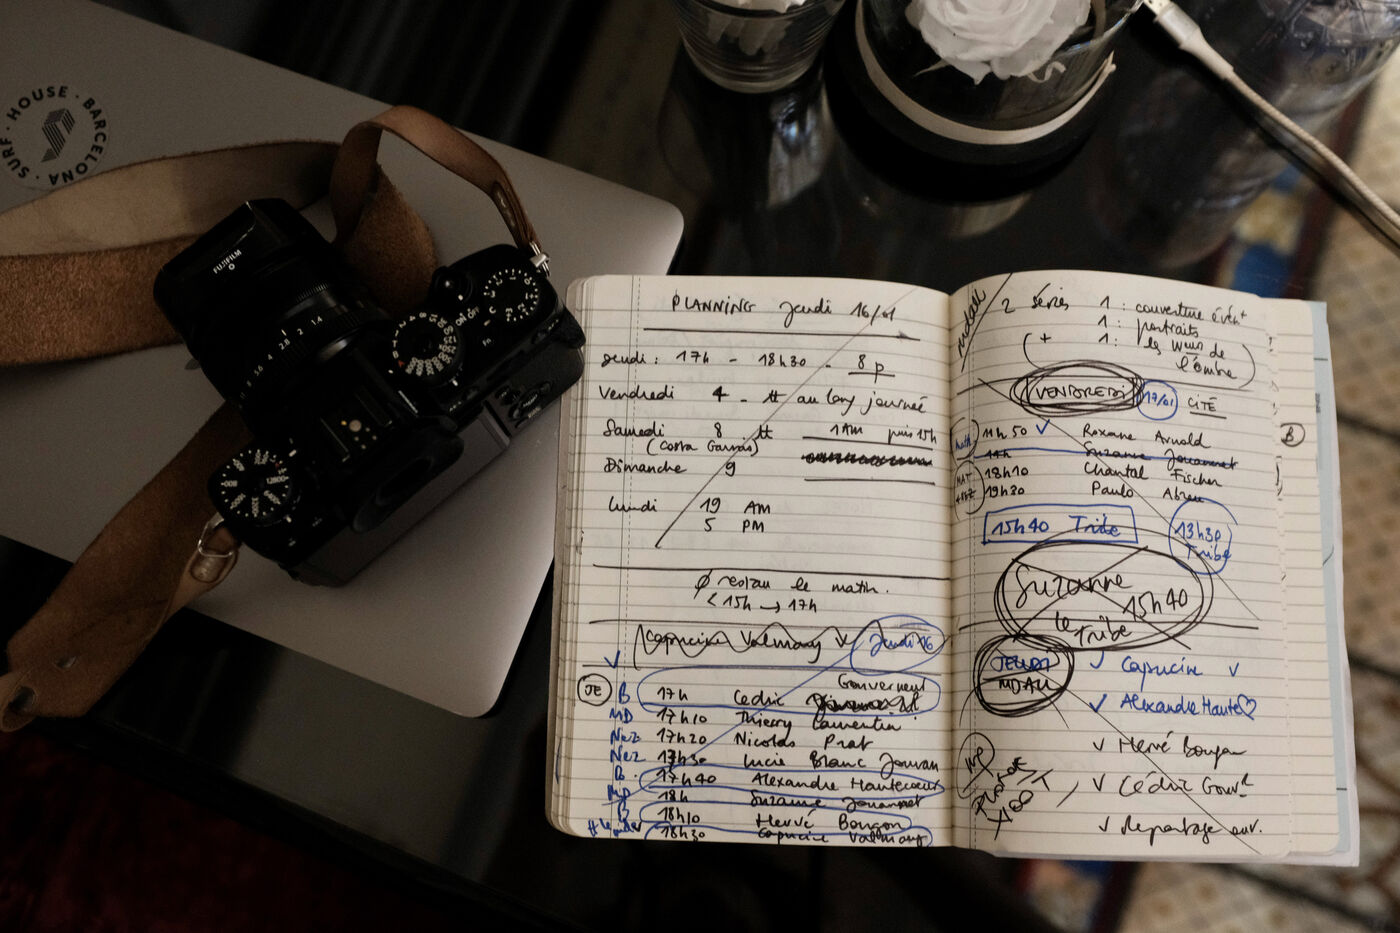 SURF · HOUSE · BARCELONA
FUJIFILM
PLANNING Jeudi 16/01
Jeudi : 17h - 18h30 - 8 p
Vendredi 4 - tt au long journée
Samedi 8 tt 1AM puis 15h
(Costa Gavras)
Dimanche 9
lundi 19 AM
5 PM
Ø restau le matin.
< 15h → 17h
Capucine Valmary Jeudi 16
Gouverneur
JE B 17h Cédric
MD 17h10 Thierry Laurentin
Nez 17h20 Nicolas Prat
Nez 17h30 Lucie Blanc Jouvan
B. 17h40 Alexandre Hautecoeur
MD 18h Suzanne Jouannet
B 18h10 Hervé Bougon
18h30 Capucine Valmary
2 séries 1 : couverture évént
1 : portraits
(+ 1 : les yeux de
l'ombre)
VENDREDI 17/01 CITÉ
11h50 ✓ Roxane Arnold
11h Suzanne Jouannet
MAT 18h10 Chantal Fischer
19h30 Paulo Abreu
B
15h40 Tribu
13h30
Tribu
Suzanne
15h40
le Tribu
JEUDI
MDAU
✓ Capucine ✓
✓ Alexandre Haute♡
✓ Hervé Bougon
✓ Cédric Gouvr
✓ Reportage ouv.
MP
X100